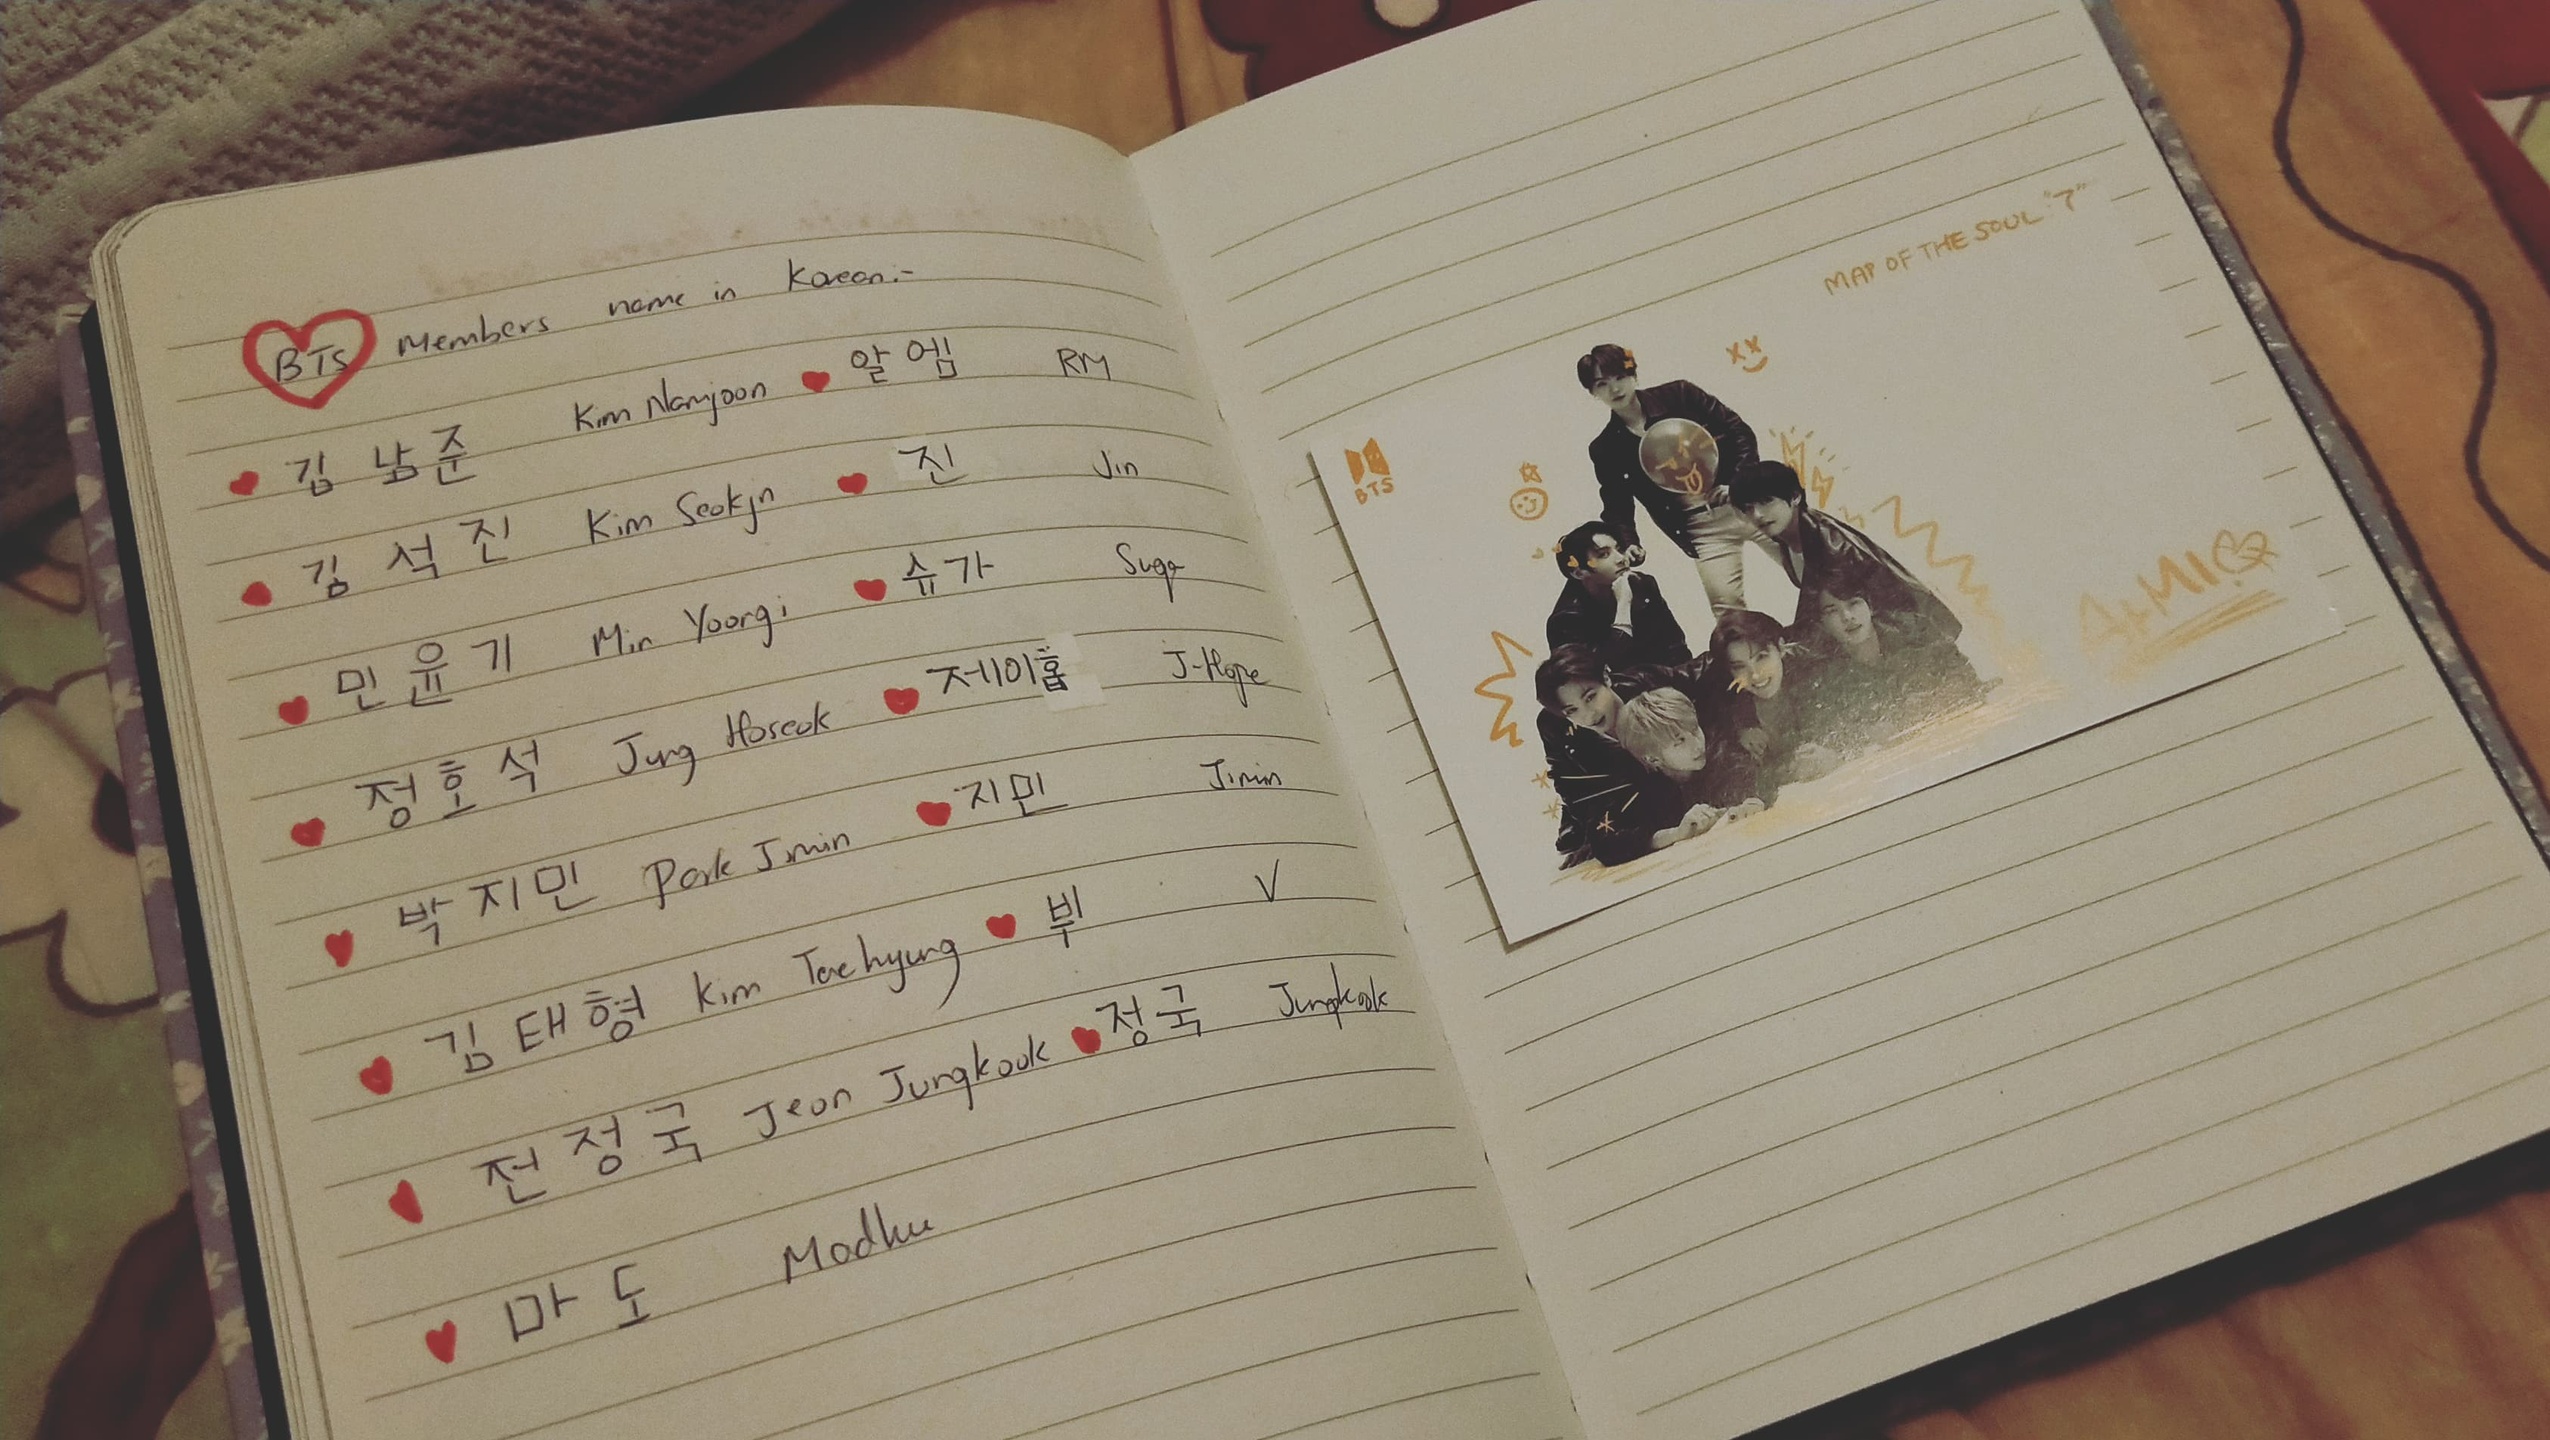 BTS Members name in Korean:-
김 남준 Kim Namjoon 알엠 RM
김 석진 Kim Seokjin 진 Jin
민 윤기 Min Yoongi 슈가 Suga
정호석 Jung Hoseok 제이홉 J-Hope
박지민 Park Jimin 지민 Jimin
김태형 Kim Taehyung 뷔 V
전정국 Jeon Jungkook 정국 Jungkook
마도 Madhu
MAP OF THE SOUL "7"
BTS